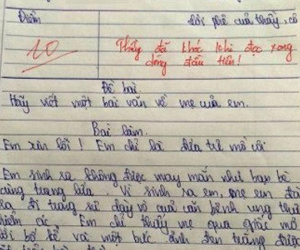 Điểm Lời phê của thầy, cô
10 Thầy đã khóc khi đọc xong
dòng đầu tiên!
Đề bài
Hãy viết một bài văn về mẹ của em.
Bài làm.
Em xin lỗi! Em chỉ là đứa trẻ mồ côi
Em sinh ra không được may mắn như bạn bè
cùng trang lứa. Vì sinh ra em, mẹ em đã
ra đi
Em chỉ thấy mẹ qua giấc mơ
và một bức ảnh đen trắng được